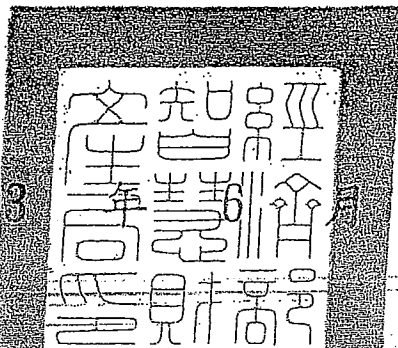 經濟部
智慧財
產局印
3 年 6 月